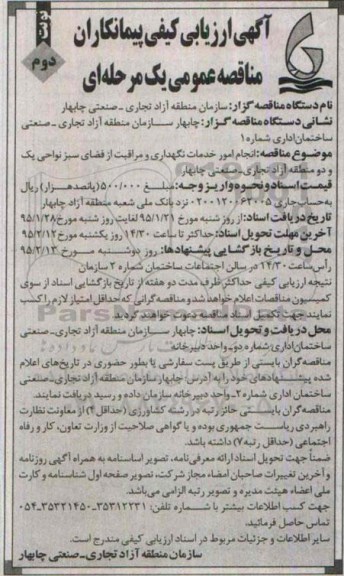 نوبت
دوم
آگهی ارزیابی کیفی پیمانکاران
مناقصه عمومی یک مرحله‌ای
نام دستگاه مناقصه گزار: سازمان منطقه آزاد تجاری ـ صنعتی چابهار
نشانی دستگاه مناقصه گزار: چابهار سازمان منطقه آزاد تجاری ـ صنعتی
ساختمان اداری شماره ۱
موضوع مناقصه: انجام امور خدمات نگهداری و مراقبت از فضای سبز نواحی یک
و دو منطقه آزاد تجاری ـ صنعتی چابهار
قیمت اسناد و نحوه واریز وجه: مبلغ ۵۰۰/۰۰۰ (پانصدهزار) ریال
به حساب جاری ۰۲۰۰۱۲۰۰۶۳۰۰۵ نزد بانک ملی شعبه منطقه آزاد چابهار
تاریخ دریافت اسناد: از روز شنبه مورخ ۹۵/۱/۲۱ لغایت روز شنبه مورخ ۹۵/۱/۲۸
آخرین مهلت تحویل اسناد: حداکثر تا ساعت ۱۴/۳۰ روز یکشنبه مورخ ۹۵/۲/۱۲
محل و تاریخ بازگشایی پیشنهادها: روز دوشنبه مورخ ۹۵/۲/۱۳
رأس ساعت ۱۴/۳۰ در سالن اجتماعات ساختمان شماره ۲ سازمان
نتیجه ارزیابی کیفی حداکثر ظرف مدت دو هفته از تاریخ بازگشایی اسناد از سوی
کمیسیون مناقصات اعلام خواهد شد و مناقصه گرانی که حداقل امتیاز لازم را کسب
نمایند جهت تکمیل اسناد مناقصه دعوت خواهند گردید.
محل دریافت و تحویل اسناد: چابهار سازمان منطقه آزاد تجاری ـ صنعتی
ساختمان اداری شماره دو ـ واحد دبیرخانه
مناقصه گران بایستی از طریق پست سفارشی یا بطور حضوری در تاریخ‌های اعلام
شده پیشنهادهای خود را به آدرس چابهار سازمان منطقه آزاد تجاری ـ صنعتی
ساختمان اداری شماره ۲ ـ واحد دبیرخانه سازمان داده و رسید دریافت نمایند.
مناقصه گران بایستی حائز رتبه در رشته کشاورزی (حداقل ۴) از معاونت نظارت
راهبردی ریاست جمهوری بوده و یا گواهی صلاحیت از وزارت تعاون، کار و رفاه
اجتماعی (حداقل رتبه ۷) داشته باشد.
ضمناً جهت تحویل اسناد ارائه معرفی نامه، تصویر اساسنامه به همراه آگهی روزنامه
و آخرین تغییرات صاحبان امضاء مجاز شرکت، تصویر صفحه اول شناسنامه و کارت
ملی اعضاء هیئت مدیره و تصویر رتبه الزامی می‌باشد.
جهت کسب اطلاعات بیشتر با شماره تلفن: ۳۵۳۱۲۲۳۱ـ۳۵۳۲۱۴۵۰ـ۰۵۴
تماس حاصل فرمائید.
سایر اطلاعات و جزئیات مربوط در اسناد ارزیابی کیفی مندرج است.
سازمان منطقه آزاد تجاری ـ صنعتی چابهار